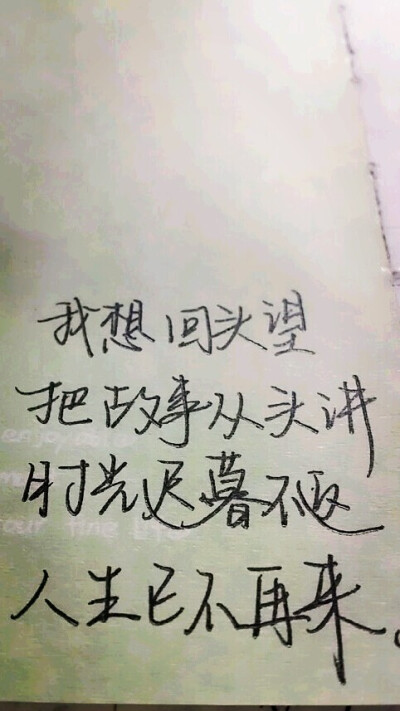 我想回头望
把故事从头讲
时光迟暮不返
人生已不再来。
enjoyable
our fine life